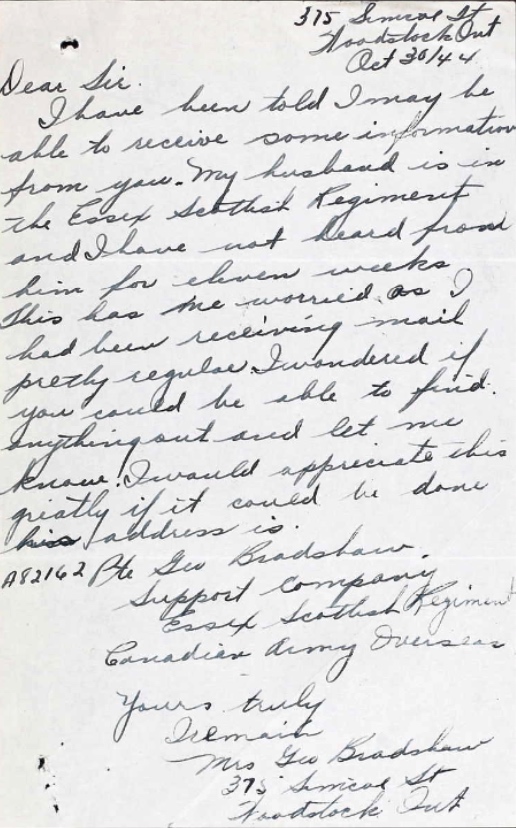 375 Simcoe St
Woodstock Ont
Oct 30/44
Dear Sir.
I have been told I may be
able to receive some information
from you. My husband is in
the Essex Scottish Regiment
and I have not heard from
him for eleven weeks
This has me worried as I
had been receiving mail
pretty regular. I wondered if
you could be able to find
anything out and let me
know. I would appreciate this
greatly if it could be done
his address is.
A82162 Pte Geo Bradshaw.
Support Company
Essex Scottish Regiment
Canadian Army Overseas
Yours truly
I remain
Mrs Geo Bradshaw
375 Simcoe St
Woodstock Ont